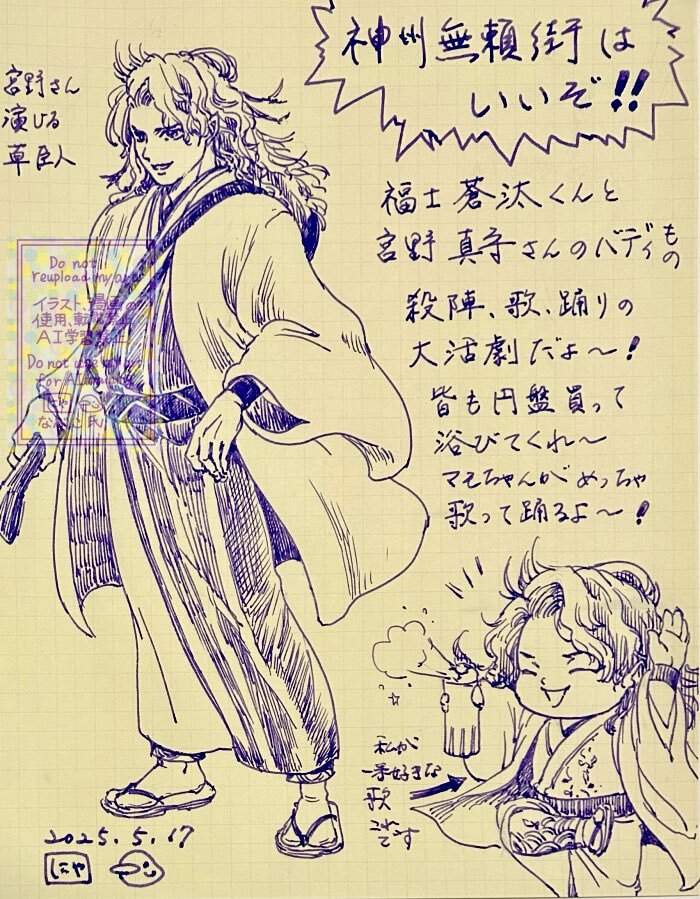 神州無頼街は
いいぞ!!
宮野さん
演じる
草臣人
福士蒼汰くんと
宮野真守さんのバディもの
殺陣、歌、踊りの
大活劇だよ〜!
皆も円盤買って
浴びてくれ〜
マモちゃんがめっちゃ
歌って踊るよ〜!
Do not
reupload my art
イラスト、漫画の
使用、転載禁止
AI学習禁止
Do not use
for AI
私が
一番好きな
歌
これ
です
2025.5.17
にゃ